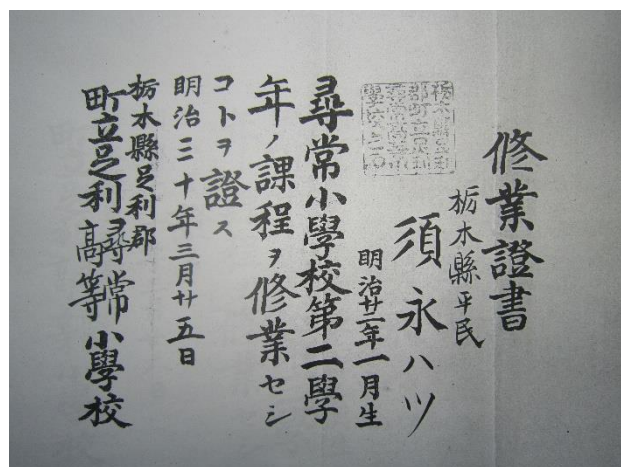 修業證書
栃木縣平民
須永ハツ
明治廿一年一月生
尋常小學校第二學
年ノ課程ヲ修業セシ
コトヲ證ス
明治三十年三月廿五日
栃木縣足利郡
町立足利尋常高等小學校